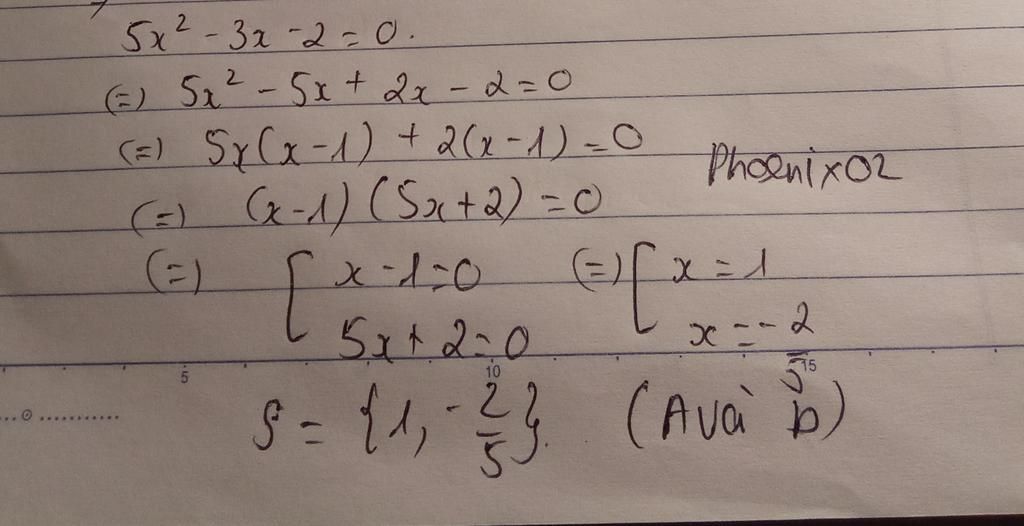 5x² - 3x - 2 = 0.
(=) 5x² - 5x + 2x - 2 = 0
(=) 5x(x - 1) + 2(x - 1) = 0
Phoenix02
(=) (x - 1) (5x + 2) = 0
(=) [ x - 1 = 0 (=) [ x = 1
5x + 2 = 0 x = -2/5
5 10 15
S = {1, -2/5}. (A và b)